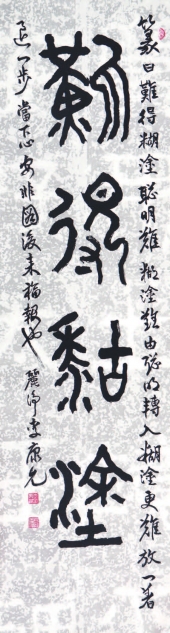 難得糊塗
篆曰難得糊塗聰明難糊塗難由聰明轉入糊塗更難放一著
退一步當下心安非圖後來福報也 康允